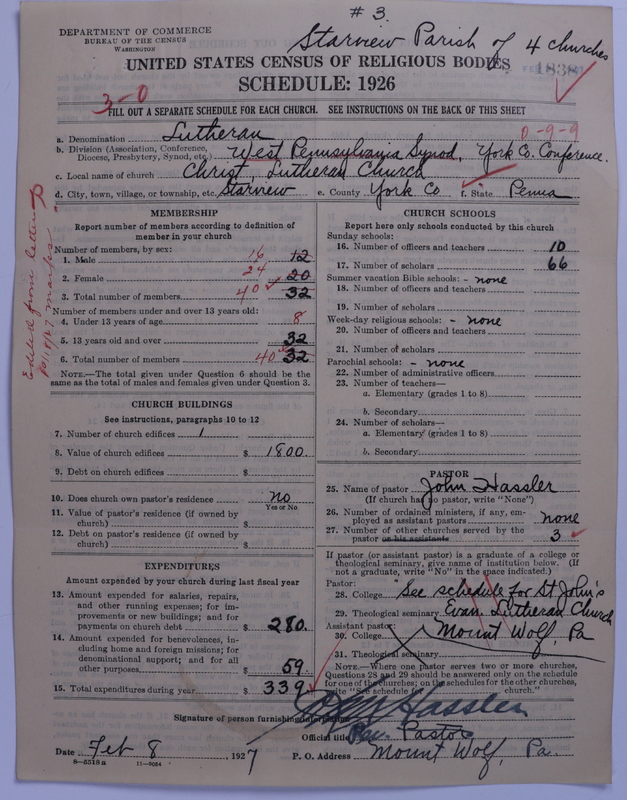 # 3.
DEPARTMENT OF COMMERCE
BUREAU OF THE CENSUS
WASHINGTON
Starview Parish of 4 churches
UNITED STATES CENSUS OF RELIGIOUS BODIES
1838
SCHEDULE: 1926
3-0
FILL OUT A SEPARATE SCHEDULE FOR EACH CHURCH. SEE INSTRUCTIONS ON THE BACK OF THIS SHEET
a. Denomination Lutheran
b. Division (Association, Conference, Diocese, Presbytery, Synod, etc.) West Pennsylvania Synod, York Co. Conference.
c. Local name of church Christ, Lutheran Church
d. City, town, village, or township, etc. Starview e. County York Co f. State Penna
MEMBERSHIP
Report number of members according to definition of
member in your church
Number of members, by sex:
1. Male 16 12
2. Female 24 20
3. Total number of members 40 32
Number of members under and over 13 years old:
4. Under 13 years of age 8
5. 13 years old and over 32
6. Total number of members 40 32
NOTE.—The total given under Question 6 should be the
same as the total of males and females given under Question 3.
CHURCH BUILDINGS
See instructions, paragraphs 10 to 12
7. Number of church edifices 1
8. Value of church edifices $ 1800.
9. Debt on church edifices $
10. Does church own pastor's residence no
Yes or No
11. Value of pastor's residence (if owned by
church) $
12. Debt on pastor's residence (if owned by
church) $
EXPENDITURES
Amount expended by your church during last fiscal year
13. Amount expended for salaries, repairs,
and other running expenses; for im-
provements or new buildings; and for
payments on church debt $ 280.
14. Amount expended for benevolences, in-
cluding home and foreign missions; for
denominational support; and for all
other purposes $ 59
15. Total expenditures during year $ 339
CHURCH SCHOOLS
Report here only schools conducted by this church
Sunday schools:
16. Number of officers and teachers 10
17. Number of scholars 66
Summer vacation Bible schools: - none
18. Number of officers and teachers
19. Number of scholars
Week-day religious schools: - none
20. Number of officers and teachers
21. Number of scholars
Parochial schools: - none
22. Number of administrative officers
23. Number of teachers—
a. Elementary (grades 1 to 8)
b. Secondary
24. Number of scholars—
a. Elementary (grades 1 to 8)
b. Secondary
PASTOR
25. Name of pastor John Hassler
(If church has no pastor, write "None")
26. Number of ordained ministers, if any, em-
ployed as assistant pastors none
27. Number of other churches served by the
pastor or his assistants 3
If pastor (or assistant pastor) is a graduate of a college or
theological seminary, give name of institution below. (If
not a graduate, write "No" in the space indicated.)
Pastor:
28. College "See schedule for St John's
29. Theological seminary Evan. Lutheran Church
Assistant pastor:
30. College Mount Wolf, Pa
31. Theological seminary
NOTE.—Where one pastor serves two or more churches,
Questions 28 and 29 should be answered only on the schedule
for one of the churches; on the schedules for the other churches,
write "See schedule for church."
Signature of person furnishing information John Hassler
Official title Pastor
Date Feb 8, 1927
P. O. Address Mount Wolf, Pa.
8-5518a 11-9034